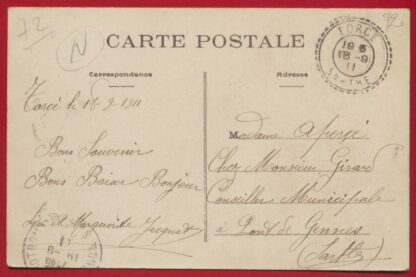 72
N
72
CARTE POSTALE
Correspondance
Adresse
TORCÉ
19 6
18-9
11
SARTHE
Torcé le 18-9-1911
Bons Souvenir
Bons Baiser Bonjour
et Marguerite
Madame
Chez Monsieur Girard
Conseiller Municipale
à Pont de Gennes
(Sarthe)